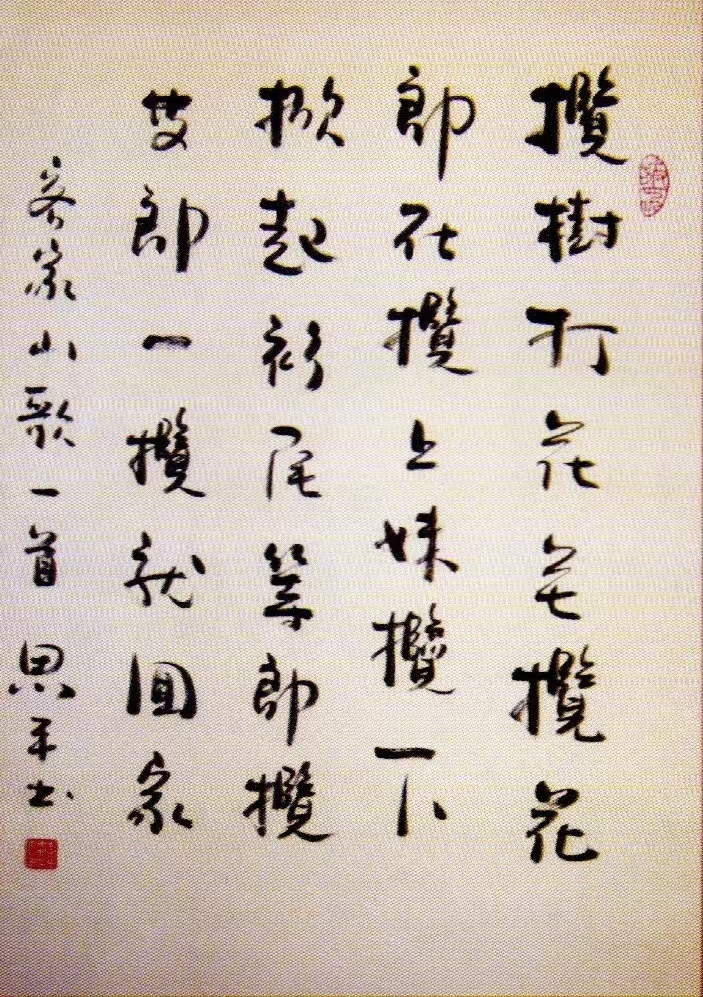 攬樹打花花攬花
郎在攬上妹攬下
掀起衫尾等郎攬
郎一攬就回家
客家山歌一首 思平書